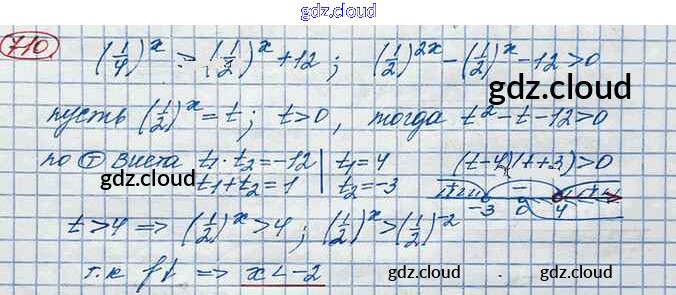 gdz.cloud
710
(1/4)^x > (1/2)^x + 12; (1/2)^2x - (1/2)^x - 12 > 0
gdz.cloud
пусть (1/2)^x = t; t > 0, тогда t² - t - 12 > 0
по т Виета t₁·t₂ = -12 | t₁ = 4 (t-4)(t+3) > 0
t₁ + t₂ = 1 | t₂ = -3 + - +
-3 0 4
t > 4 => (1/2)^x > 4; (1/2)^x > (1/2)^-2
gdz.cloud
т.к f↓ => x < -2
gdz.cloud gdz.cloud